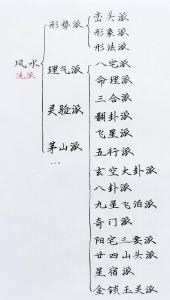 风水
流派
形势派
峦头派
形象派
形法派
理气派
八宅派
命理派
三合派
翻卦派
飞星派
五行派
玄空大卦派
八卦派
九星飞泊派
奇门派
阳宅三要派
廿四山头派
星宿派
金锁玉关派
灵验派
茅山派
...